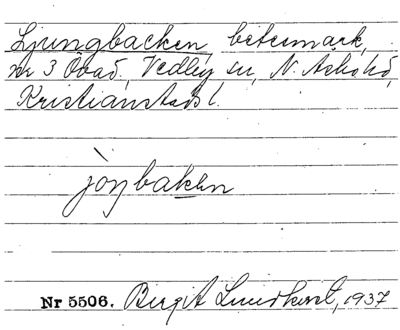 Ljungbacken, betesmark,
nr 3 Övad, Vedby sn, N. Åsbo hd,
Kristianstads l.
jɔŋbakən
Nr 5506. Birgit Lundkvist, 1937